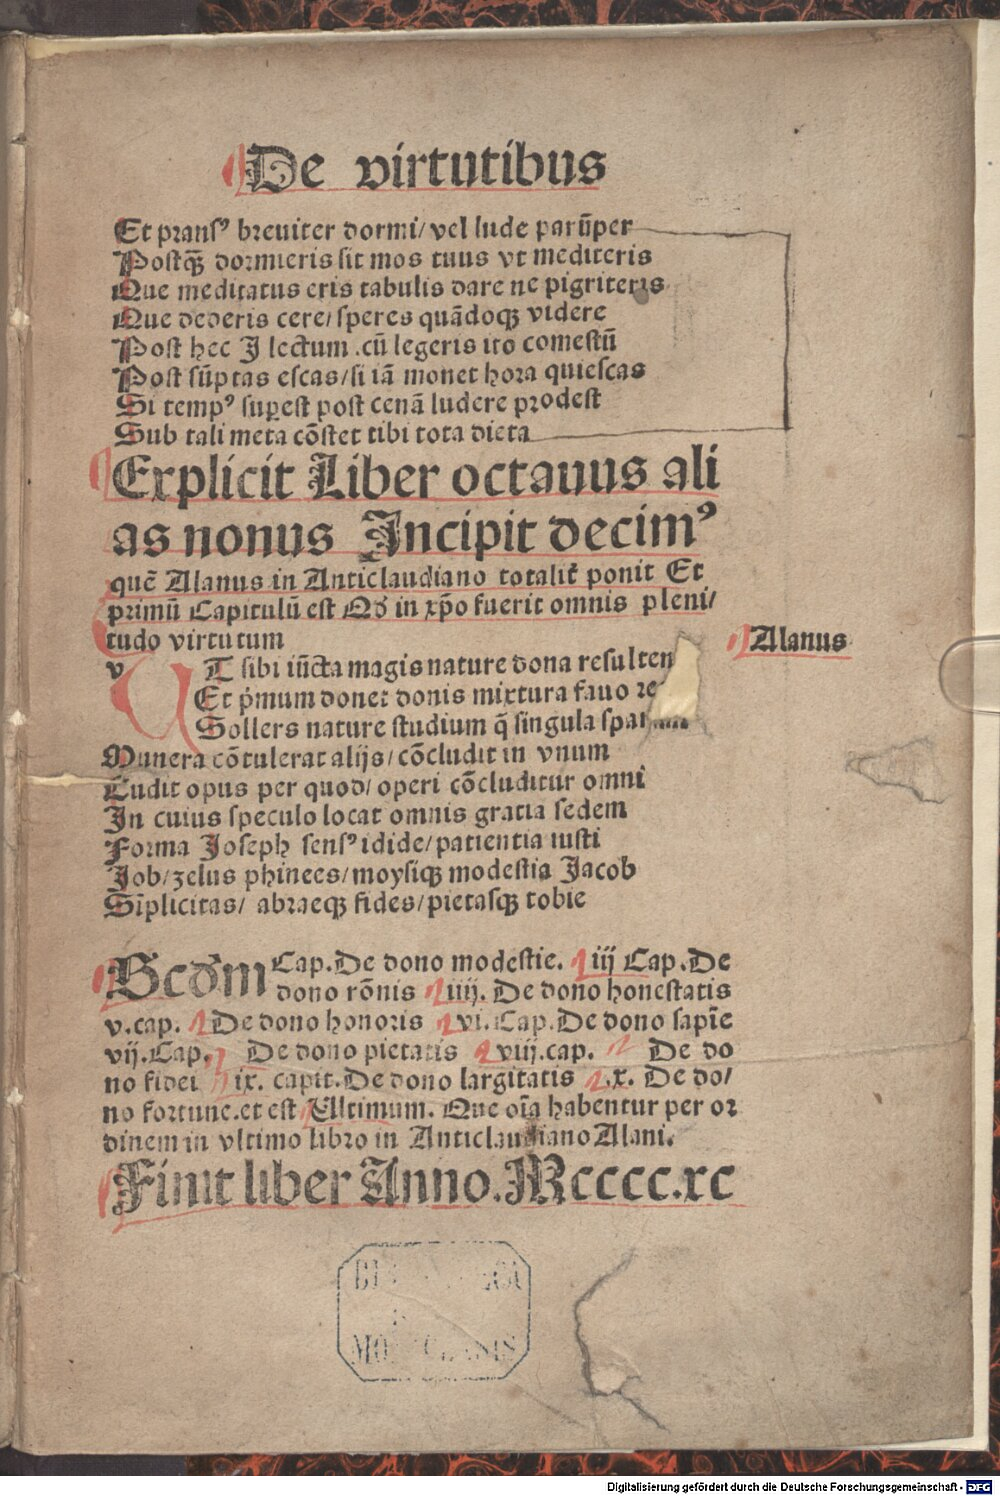 De virtutibus
Et pransꝰ breuiter dormi/ vel lude parūper
Postqꝫ̄ dormieris sit mos tuus vt mediteris
Que meditatus eris tabulis dare ne pigriteris
Que dederis cere/ speres quādoqꝫ videre
Post hec I lectum .cū legeris ito comestū
Post sūptas escas/ si iā monet hora quiescas
Si tempꝰ suꝑest post cenā ludere prodest
Sub tali meta cōstet tibi tota dieta
Explicit Liber octauus ali
as nonus Incipit decimꝰ
quē Alanus in Anticlaudiano totalit̄ ponit Et
primū Capitulū est Qd̄ in xp̄o fuerit omnis pleni/
tudo virtutum
Alanus
v T sibi iūcta magis nature dona resulten
Et p̄mum donet donis mixtura fauo re
Sollers nature studium q̄ singula
Munera cōtulerat alijs/ cōcludit in vnum
Cudit opus per quod/ operi cōcluditur omni
In cuius speculo locat omnis gratia sedem
Forma Joseph sensꝰ idide/ patientia iusti
Job/ zelus phinees/ moysiqꝫ modestia Jacob
Sīplicitas/ abraeqꝫ fides/ pietasqꝫ tobie
Scd̄m Cap. De dono modestie. iij Cap. De
dono rōnis iiij. De dono honestatis
v. cap. De dono honoris vi. Cap. De dono sapīe
vij. Cap. De dono pietatis viij. cap. De do
no fidei ix. capit. De dono largitatis .x. De do/
no fortune. et est Ultimum. Que oīa habentur per or
dinem in vltimo libro in Anticlaudiano Alani.
Finit liber Anno. Mcccc.xc
Digitalisierung gefördert durch die Deutsche Forschungsgemeinschaft - DFG